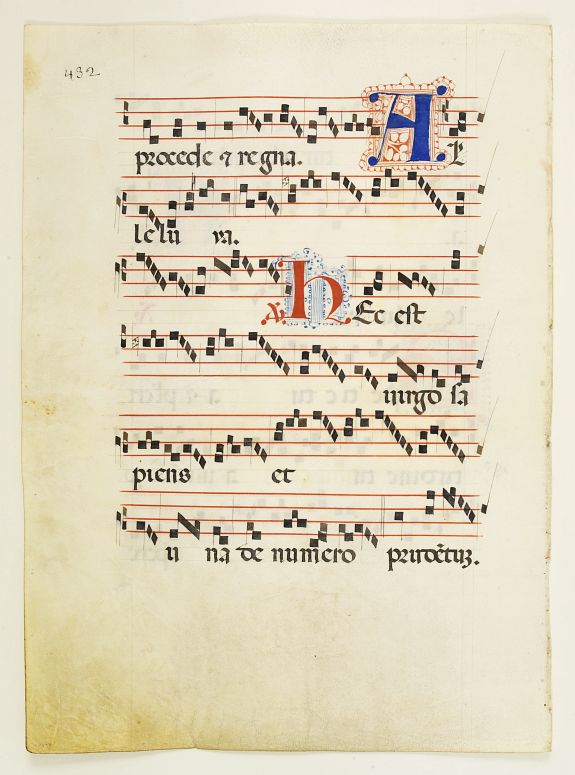 432
procede ⁊ regna. AL
leluya.
℣. hEc est
uirgo sa
piens et
una de numero prudētuȝ.